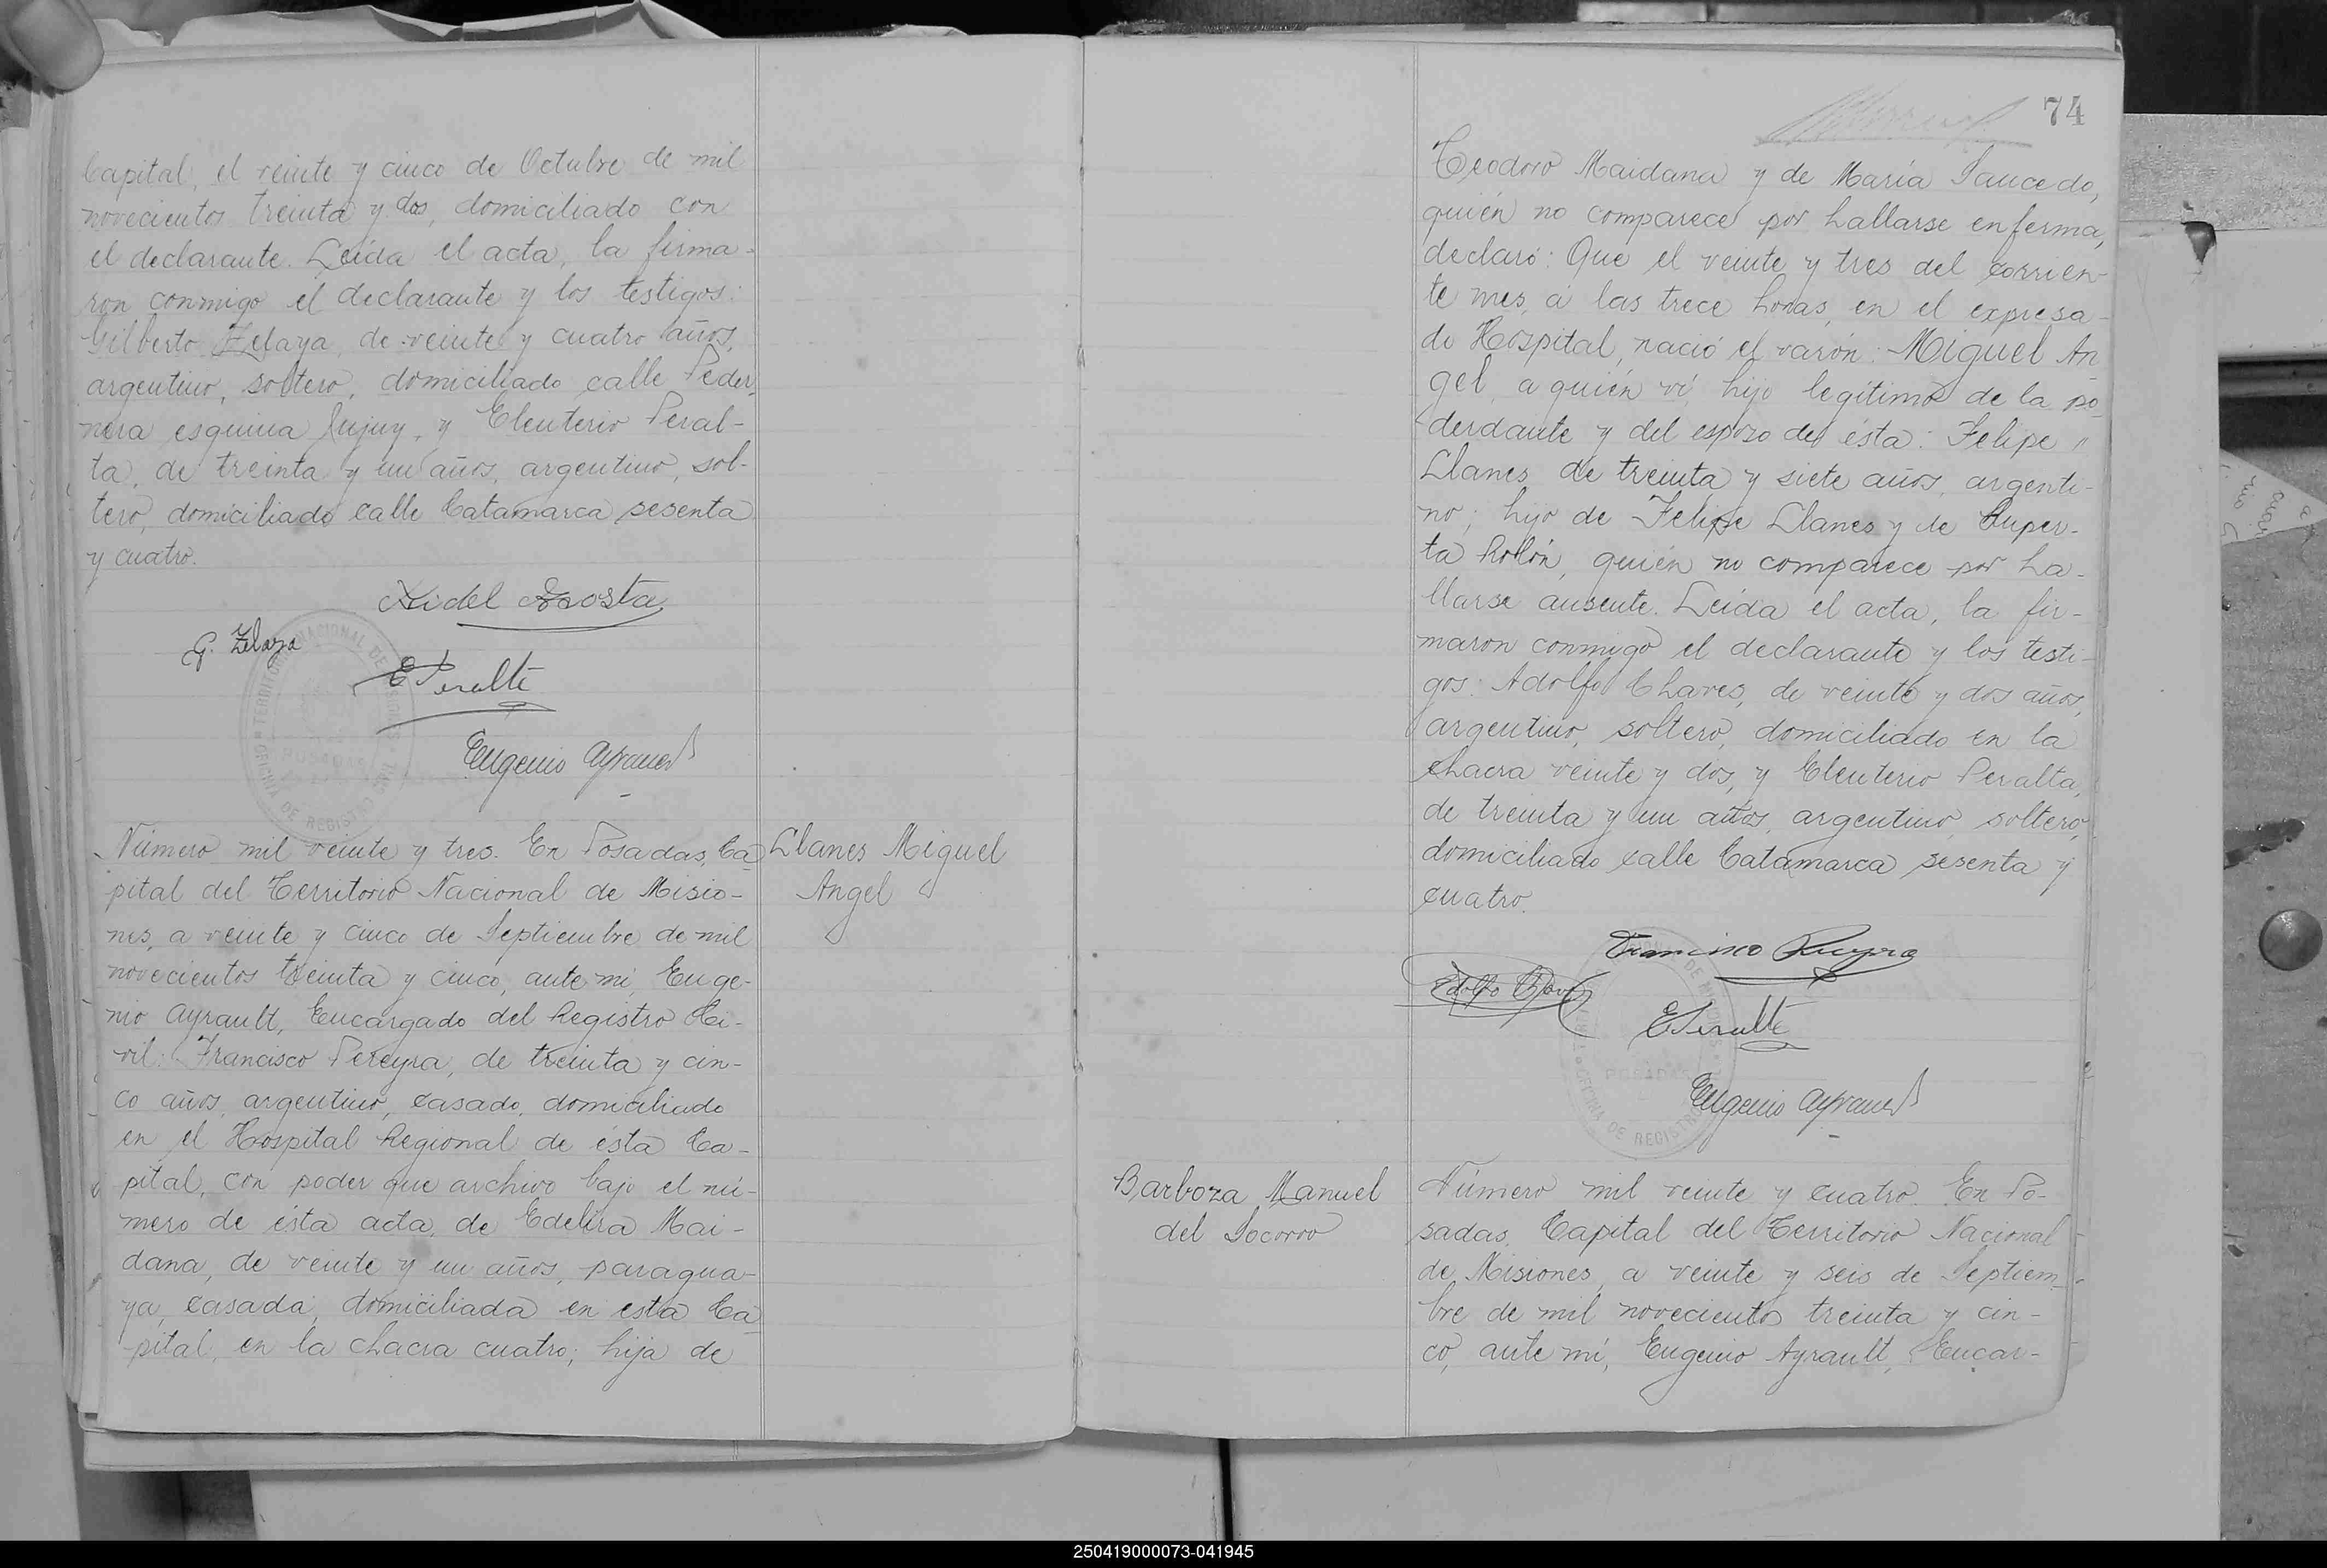 Capital, el veinte y cinco de Octubre de mil
novecientos treinta y dos, domiciliado con
el declarante. Leída el acta, la firma-
ron conmigo el declarante y los testigos:
Gilberto Zelaya, de veinte y cuatro años,
argentino, soltero, domiciliado calle Peder-
nera esquina Jujuy, y Eleuterio Peral-
ta, de treinta y un años, argentino, sol-
tero, domiciliado calle Catamarca sesenta
y cuatro.
Fidel Acosta
G. Zelaya
E Peralta
Eugenio Ayrault
TERRITORIO NACIONAL DE MISIONES
POSADAS
OFICINA DE REGISTRO
Número mil veinte y tres. En Posadas, Ca-
pital del Territorio Nacional de Misio-
nes, a veinte y cinco de Septiembre de mil
novecientos treinta y cinco, ante mí, Euge-
nio Ayrault, Encargado del Registro Ci-
vil: Francisco Pereyra, de treinta y cin-
co años, argentino, casado, domiciliado
en el Hospital Regional de ésta Ca-
pital, con poder que archivo bajo el nú-
mero de ésta acta, de Edelira Mai-
dana, de veinte y un años, paragua-
ya, casada, domiciliada en esta Ca-
pital, en la chacra cuatro; hija de
Llanes Miguel
Angel
74
Teodoro Maidana y de María Saucedo,
quién no comparece por hallarse enferma,
declaró: Que el veinte y tres del corrien-
te mes, á las trece horas, en el expresa-
do Hospital, nació el varón: Miguel An-
gel, a quién ví, hijo legítimo de la po-
derdante y del esposo de ésta: Felipe "
Llanes, de treinta y siete años, argenti-
no; hijo de Felipe Llanes y de Ruper-
ta Rolón, quién no comparece por ha-
llarse ausente. Leída el acta, la fir-
maron conmigo el declarante y los testi-
gos: Adolfo Chaves, de veinte y dos años,
argentino, soltero, domiciliado en la
chacra veinte y dos, y Eleuterio Peralta,
de treinta y un años, argentino, soltero,
domiciliado calle Catamarca sesenta y
cuatro.
Francisco Pereyra
Adolfo Chaves
E Peralta
Eugenio Ayrault
POSADAS
OFICINA DE REGISTRO
Barboza Manuel
del Socorro
Número mil veinte y cuatro. En Po-
sadas, Capital del Territorio Nacional
de Misiones, a veinte y seis de Septiem-
bre de mil novecientos treinta y cin-
co, ante mí, Eugenio Ayrault, Encar-
250419000073-041945